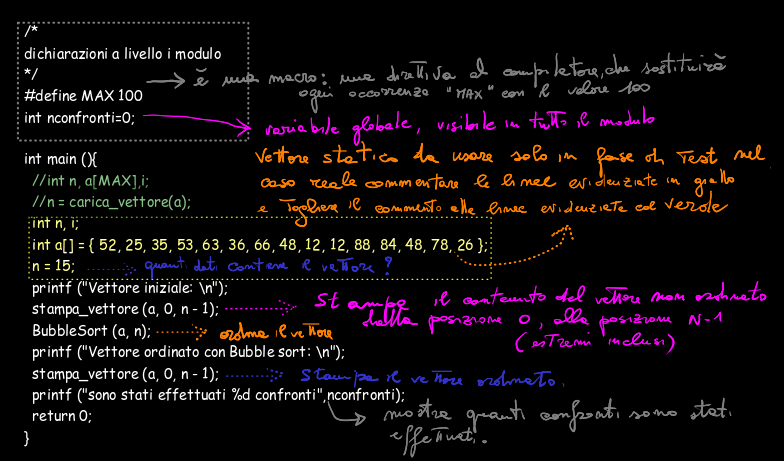 /*
dichiarazioni a livello i modulo
*/
#define MAX 100
int nconfronti=0;
è una macro: una direttiva al compilatore, che sostituirà
ogni occorrenza "MAX" con il valore 100
variabile globale, visibile in tutto il modulo
int main (){
//int n, a[MAX],i;
//n = carica_vettore(a);
Vettore statico da usare solo in fase di Test nel
caso reale commentare le linee evidenziate in giallo
e togliere il commento alle linee evidenziate col verde
int n, i;
int a[] = { 52, 25, 35, 53, 63, 36, 66, 48, 12, 12, 88, 84, 48, 78, 26 };
n = 15;
quanti dati contiene il vettore?
printf ("Vettore iniziale: \n");
stampa_vettore (a, 0, n - 1);
Stampa il contenuto del vettore non ordinato
dalla posizione 0, alla posizione N-1
(estremi inclusi)
BubbleSort (a, n);
ordina il vettore
printf ("Vettore ordinato con Bubble sort: \n");
stampa_vettore (a, 0, n - 1);
Stampa il vettore ordinato.
printf ("sono stati effettuati %d confronti",nconfronti);
mostra quanti confronti sono stati
effettuati.
return 0;
}